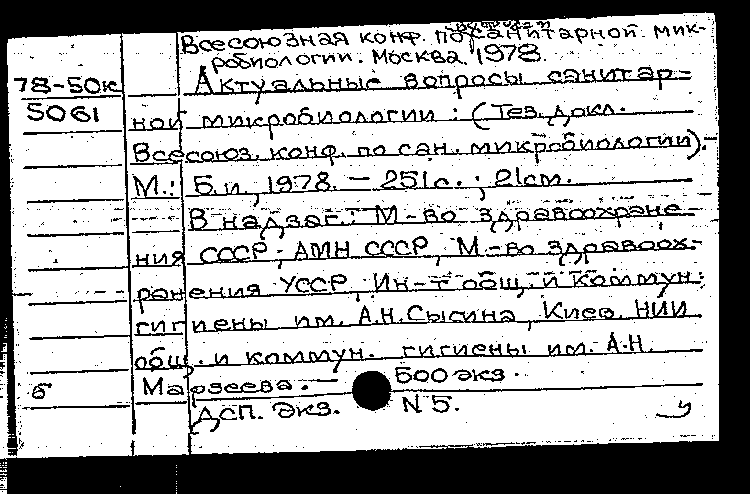 Всесоюзная конф. по санитарной мик-
робиологии. Москва, 1978.
78-50к
5061
Актуальные вопросы санитар-
ной микробиологии : (Тез. докл.
Всесоюз. конф. по сан. микробиологии).-
М.: Б.и, 1978. - 251с. ; 21см.
В надзаг.: М-во здравоохране-
ния СССР; АМН СССР, М-во здравоох-
ранения УССР, Ин-т общ. и коммун.
гигиены им. А.Н.Сысина, Киев. НИИ
общ. и коммун. гигиены им. А.Н.
Марзеева. - 500 экз.
б
ДСП. Экз. N 5.